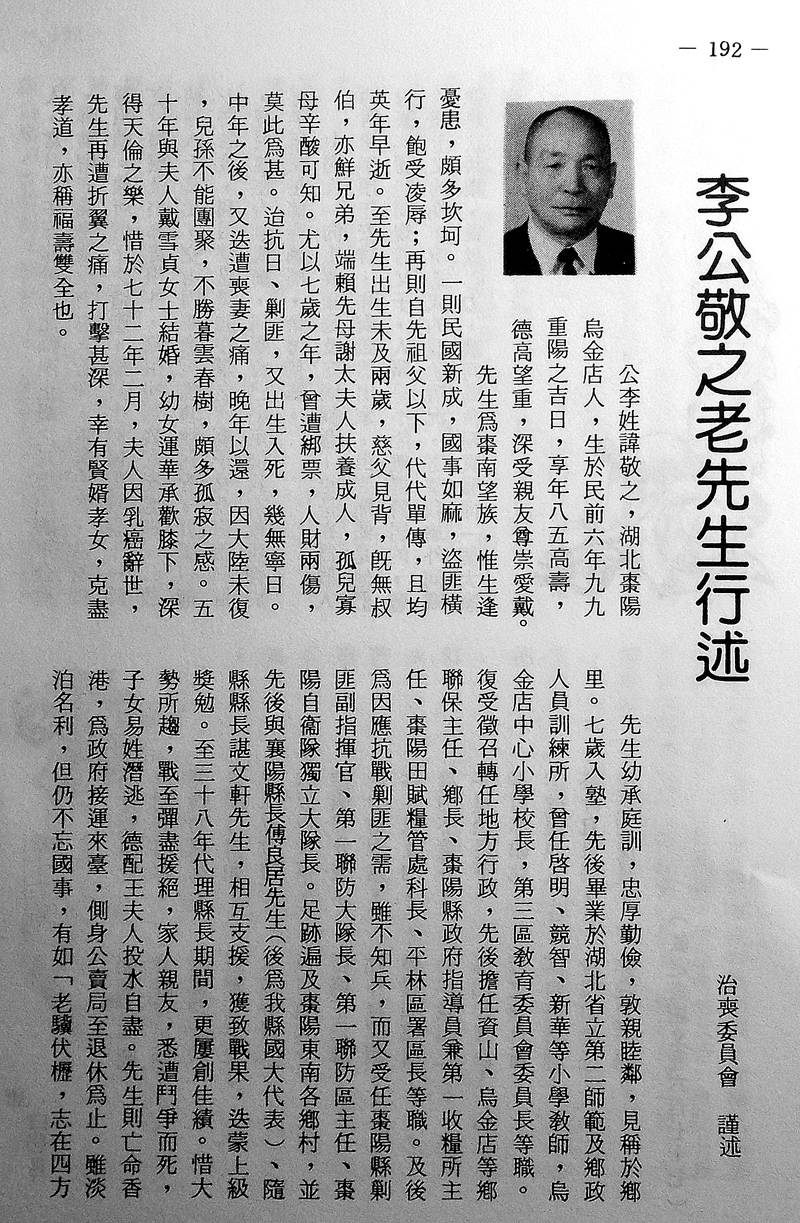 — 192 —
李公敬之老先生行述
治喪委員會 謹述
公李姓諱敬之，湖北棗陽
烏金店人，生於民前六年九九
重陽之吉日，享年八五高壽，
德高望重，深受親友尊崇愛戴。
先生爲棗南望族，惟生逢
憂患，頗多坎坷。一則民國新成，國事如麻，盜匪橫
行，飽受凌辱；再則自先祖父以下，代代單傳，且均
英年早逝。至先生出生未及兩歲，慈父見背，旣無叔
伯，亦鮮兄弟，端賴先母謝太夫人扶養成人，孤兒寡
母辛酸可知。尤以七歲之年，曾遭綁票，人財兩傷，
莫此爲甚。迨抗日、剿匪，又出生入死，幾無寧日。
中年之後，又迭遭喪妻之痛，晚年以還，因大陸未復
，兒孫不能團聚，不勝暮雲春樹，頗多孤寂之感。五
十年與夫人戴雪貞女士結婚，幼女運華承歡膝下，深
得天倫之樂，惜於七十二年二月，夫人因乳癌辭世，
先生再遭折翼之痛，打擊甚深，幸有賢婿孝女，克盡
孝道，亦稱福壽雙全也。
先生幼承庭訓，忠厚勤儉，敦親睦鄰，見稱於鄉
里。七歲入塾，先後畢業於湖北省立第二師範及鄉政
人員訓練所，曾任啓明、競智、新華等小學敎師，烏
金店中心小學校長，第三區敎育委員會委員長等職。
復受徵召轉任地方行政，先後擔任資山、烏金店等鄉
聯保主任、鄉長、棗陽縣政府指導員兼第一收糧所主
任、棗陽田賦糧管處科長、平林區署區長等職。及後
爲因應抗戰剿匪之需，雖不知兵，而又受任棗陽縣剿
匪副指揮官、第一聯防大隊長、第一聯防區主任、棗
陽自衞隊獨立大隊長。足跡遍及棗陽東南各鄉村，並
先後與襄陽縣長傅良居先生（後爲我縣國大代表）、隨
縣縣長諶文軒先生，相互支援，獲致戰果，迭蒙上級
獎勉。至三十八年代理縣長期間，更屢創佳績。惜大
勢所趨，戰至彈盡援絕，家人親友，悉遭鬥爭而死，
子女易姓潛逃，德配王夫人投水自盡。先生則亡命香
港，爲政府接運來臺，側身公賣局至退休爲止。雖淡
泊名利，但仍不忘國事，有如「老驥伏櫪，志在四方